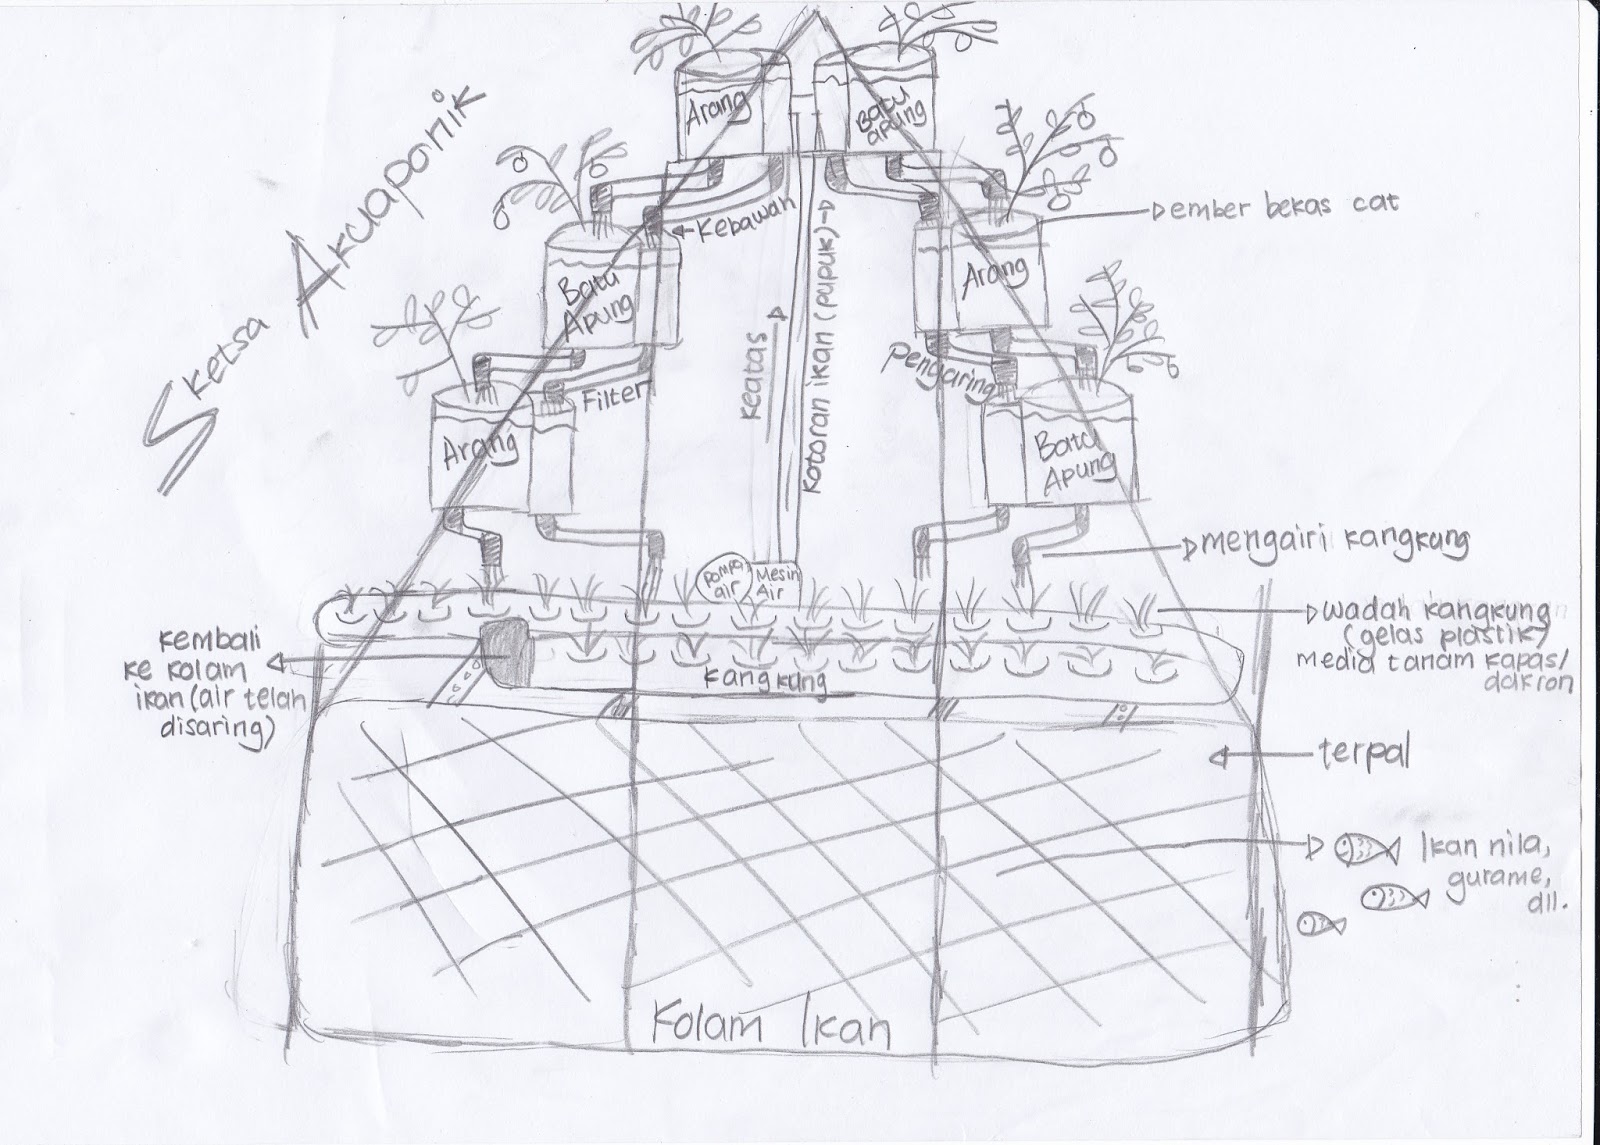 Sketsa Akuaponik
Arang
Batu
apung
Kebawah
ember bekas cat
Batu
Apung
Arang
Keatas
Kotoran ikan (pupuk)
Filter
Pengaring
Arang
Batu
Apung
mengairi kangkung
Pompa
air
Mesin
Air
wadah kangkung
(gelas plastik)
media tanam kapas/
dakron
kembali
ke kolam
ikan (air telah
disaring)
Kangkung
terpal
Ikan nila,
gurame,
dll.
Kolam Ikan